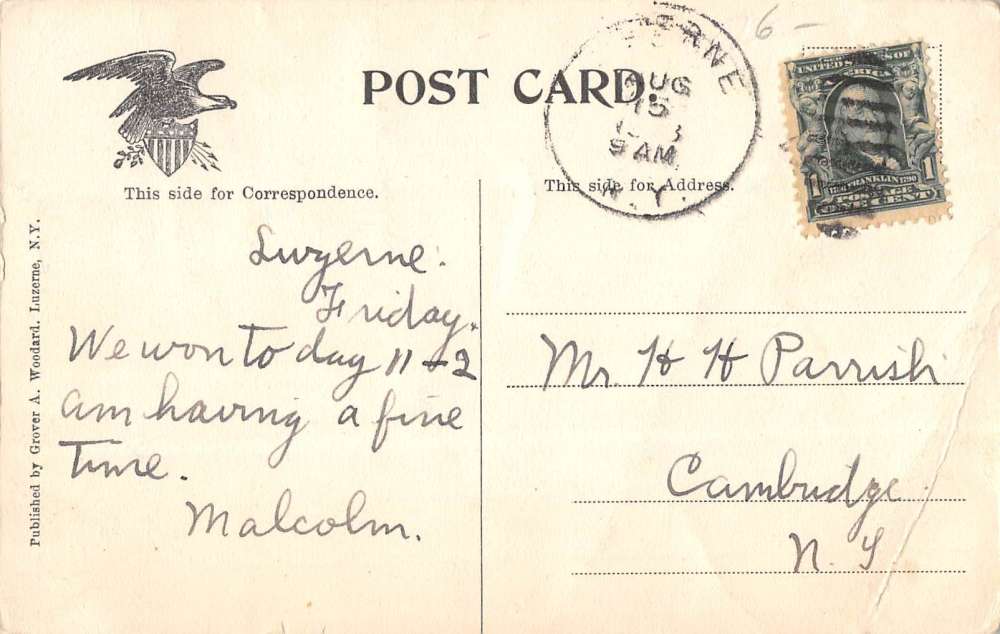 6-
POST CARD.
LUZERNE
AUG
15
9 AM.
N.Y.
UNITED STATES OF
AMERICA
1 FRANKLIN 1
POSTAGE
ONE CENT
This side for Correspondence.
This side for Address.
Luzerne.
Friday.
We won to day 11-2
am having a fine
time.
Malcolm.
Mr. H H Parrish
Cambridge
N. Y
Published by Grover A. Woodard, Luzerne, N.Y.